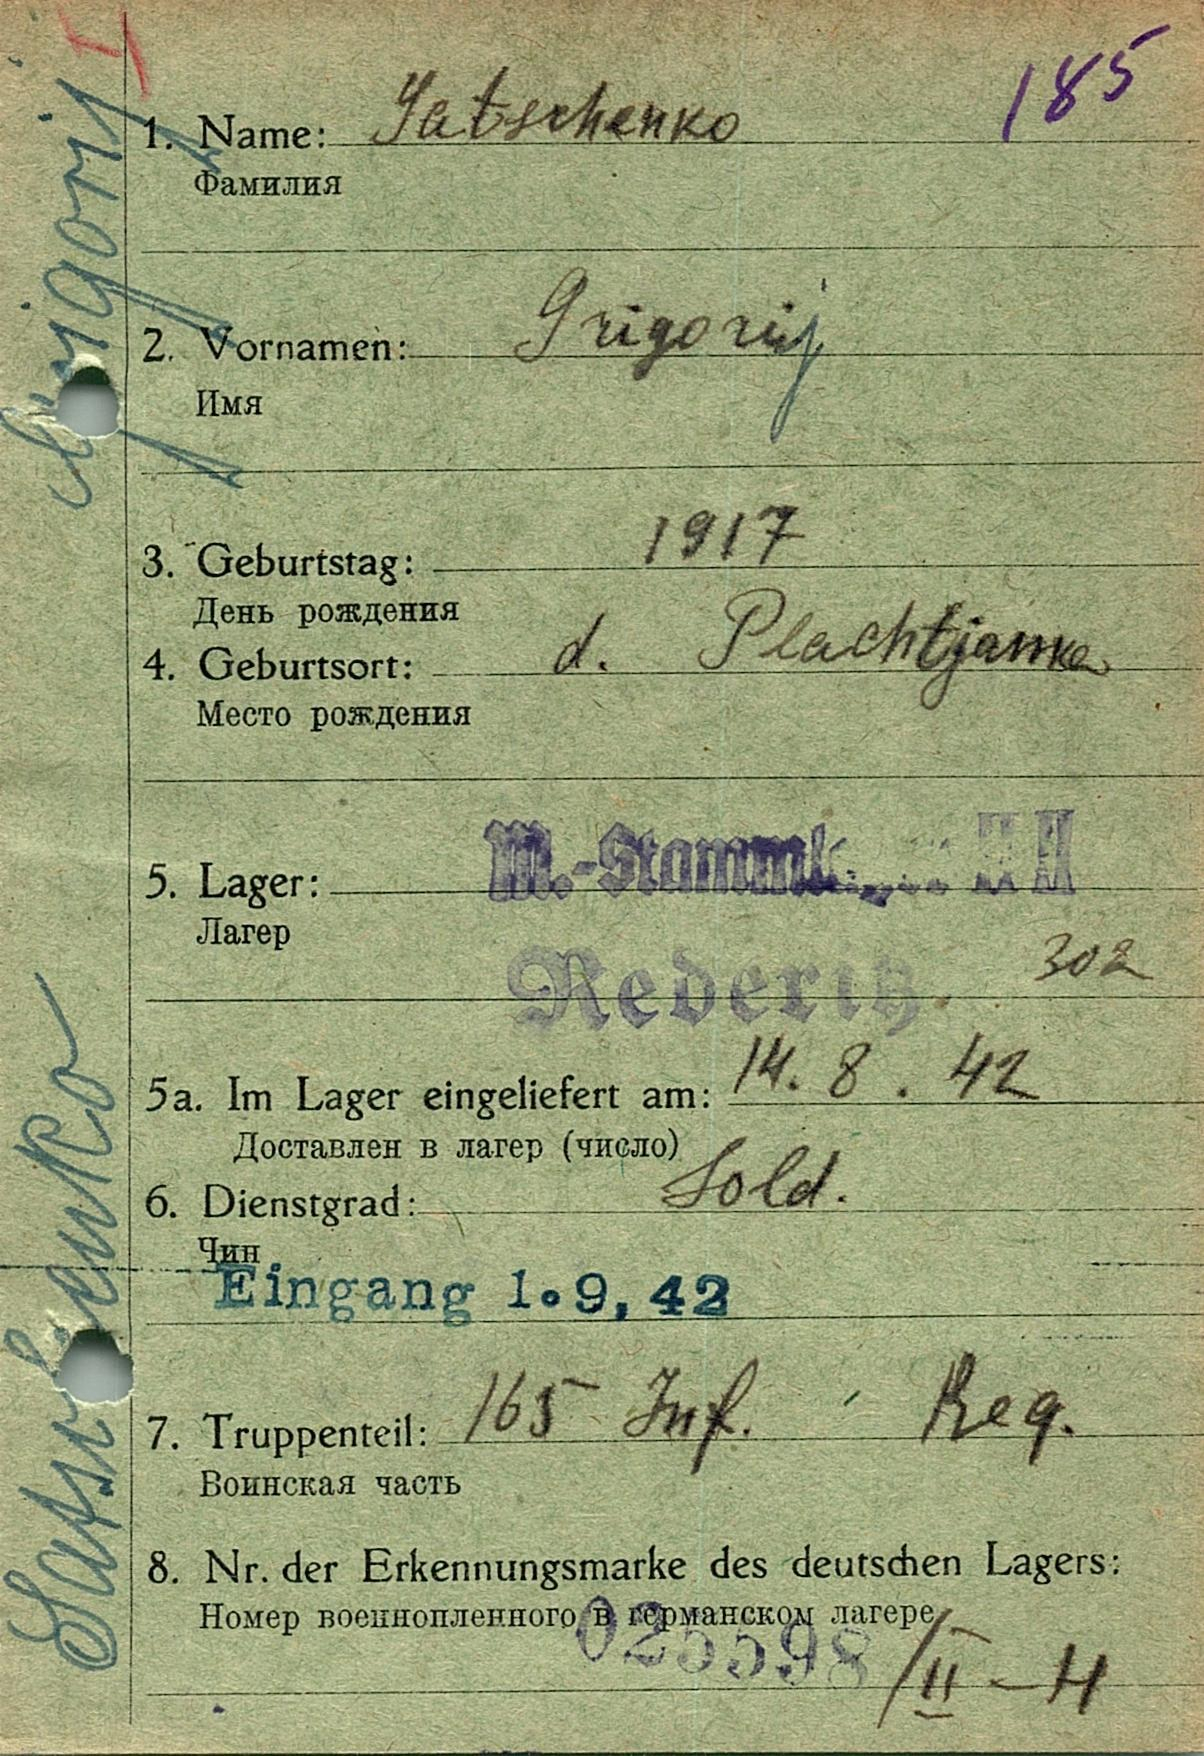 185
1. Name: Satschenko
Фамилия
2. Vornamen: Grigorij
Имя
3. Geburtstag: 1917
День рождения
4. Geburtsort: d. Plachtjanka
Место рождения
5. Lager: M.-Stamml II H
Лагер
Rederitz. 302
5a. Im Lager eingeliefert am: 14. 8. 42
Доставлен в лагер (число)
6. Dienstgrad: Sold.
Чин
Eingang 1.9,42
7. Truppenteil: 165 Inf. Reg.
Воинская часть
8. Nr. der Erkennungsmarke des deutschen Lagers:
Номер военнопленного в германском лагере
025598 /II-H
Satschenko Grigorij